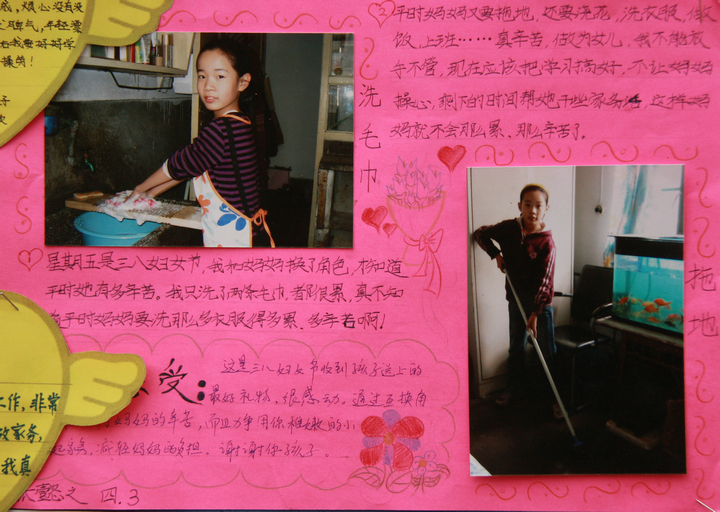 平时妈妈又要拖地,还要浇花,洗衣服,做
饭,上班……真辛苦,做为女儿,我不能放
手不管,现在应该把学习搞好,不让妈妈
操心,剩下的时间帮她干些家务活,这样妈
妈就不会那么累、那么辛苦了。
洗毛巾
拖地
星期五是三八妇女节,我和妈妈换了角色,才知道
平时她有多辛苦。我只洗了两条毛巾,都很累,真不知
平时妈妈要洗那么多衣服得多累、多辛苦啊!
受:
这是三八妇女节收到孩子送上的
最好礼物,很感动。通过互换角
妈妈的辛苦,而且力争用你稚嫩的小
减轻妈妈负担。谢谢你孩子。
四.3
烦心没有没
脾气,年轻零
我要好好学
工作,非常
做家务,
我真